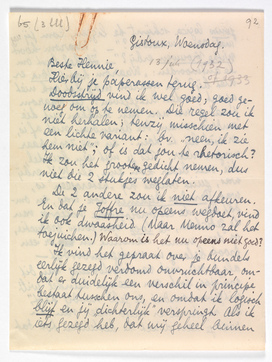 65 (3 Ull)
92
Gistoux, Woensdag.
13 juli (1932)
of 1933
Beste Hennie,
Hierbij je paperassen terug.
Doodsstrijd vind ik wel goed; goed ge-
noeg om op te nemen. Die regel zou ik
niet herhalen; tenzij misschien met
een lichte variant: bv. „neen, ik zie
hem niet"; of is dat jou te rhetorisch?
Ik zou het groote gedicht nemen, dus
niet die 2 stukjes weglaten.
De 2 andere zou ik niet afkeuren.
En dat je Joffre nu opeens wegdoet, vind
ik ook dwaasheid (Maar Menno zal het
toejuichen.) Waarom is het nu opeens niet goed?
Ik vind het gepraat over je bundels
eerlijk gezegd verdomd onvruchtbaar om-
dat er duidelijk een verschil in principe
bestaat tusschen ons, en omdat ik logisch
blijf en jij dichterlijk verspringt als ik
iets gezegd heb, dat wij geheel binnen